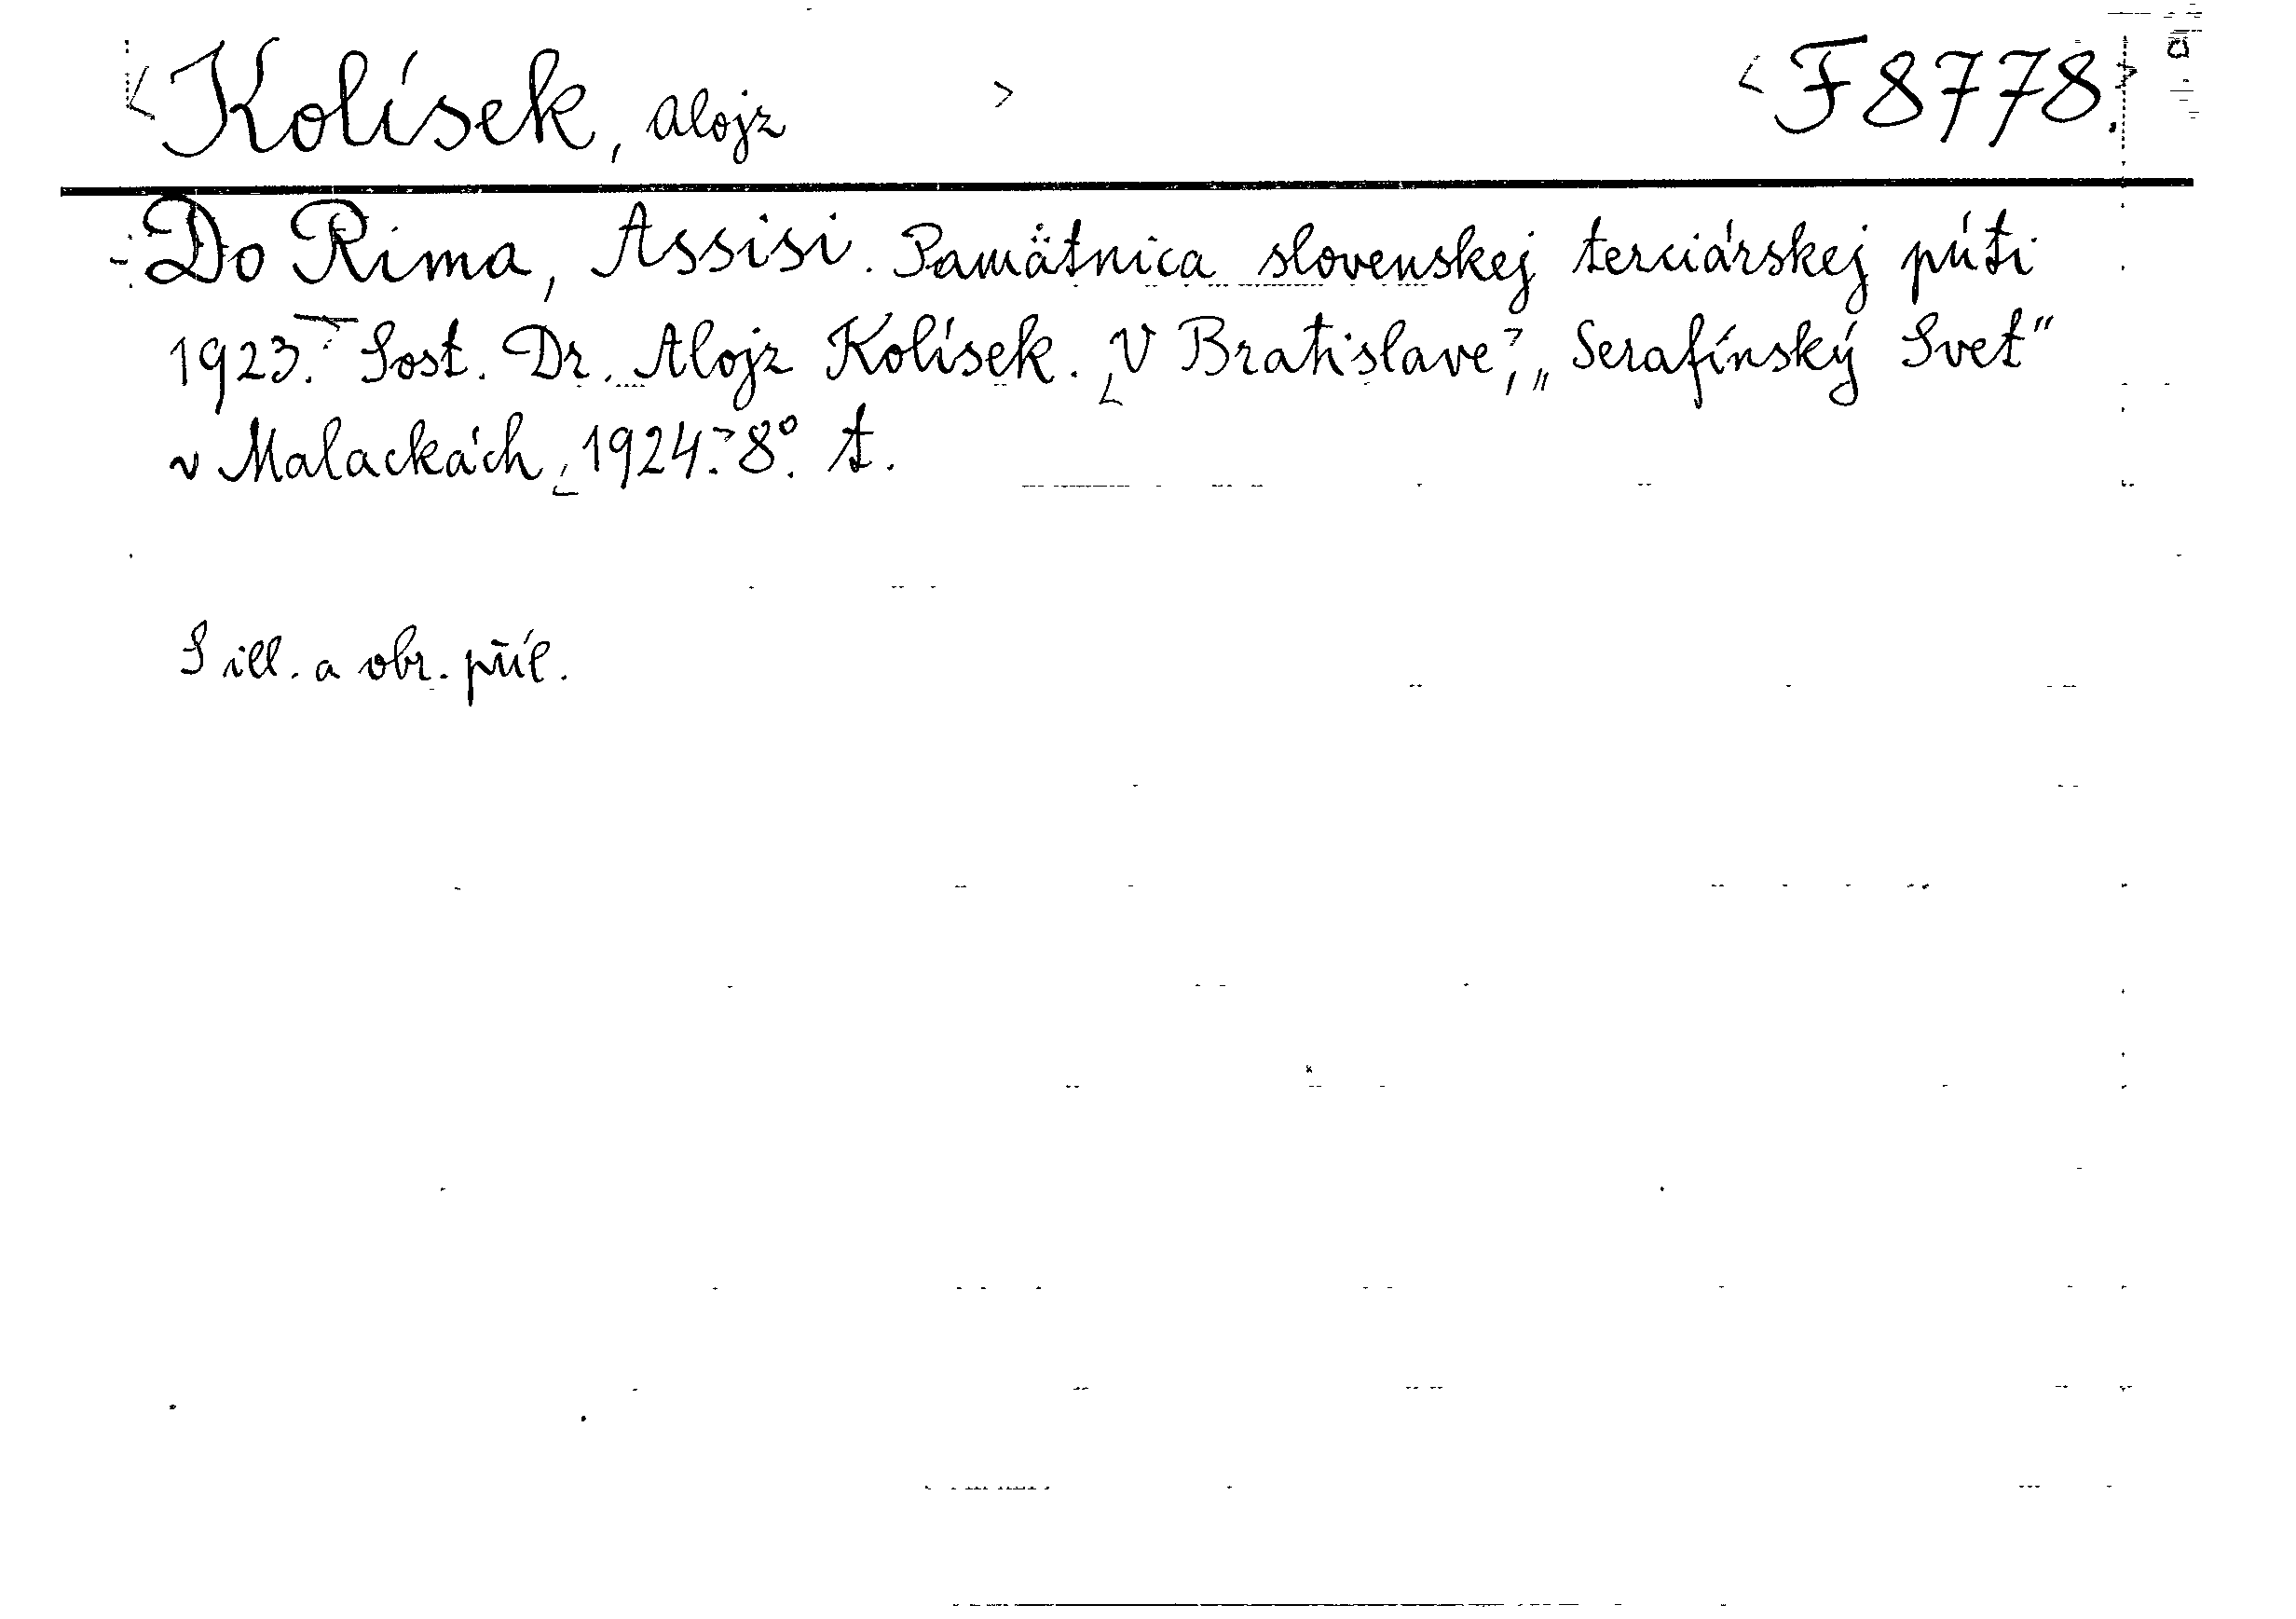 <Kolísek, Alojz > <F 8778.>
Do Ríma, Assisi. Pamätnica slovenskej terciárskej púti
1923. Sost. Dr. Alojz Kolísek. <V Bratislave,> „Serafínský Svet"
v Malackách, <1924.> 8°. t.
S ill. a obr. příl.